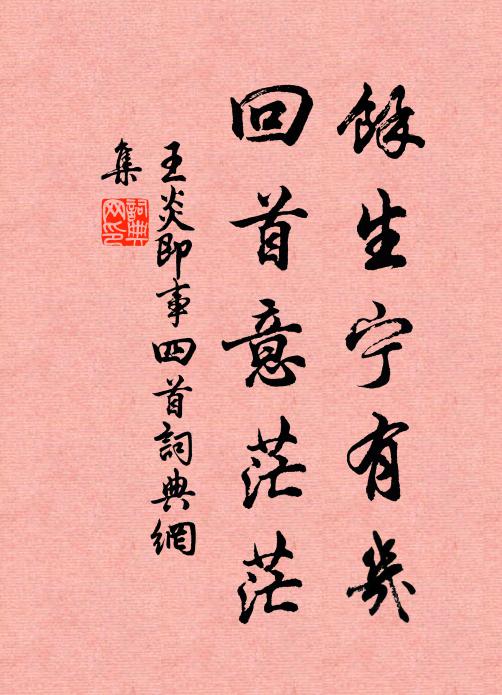 餘生宁有幾
回首意茫茫
王炎即事四首詞典網
集
詞典
网印